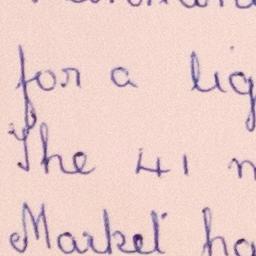 for a lig
The 41
Market ha